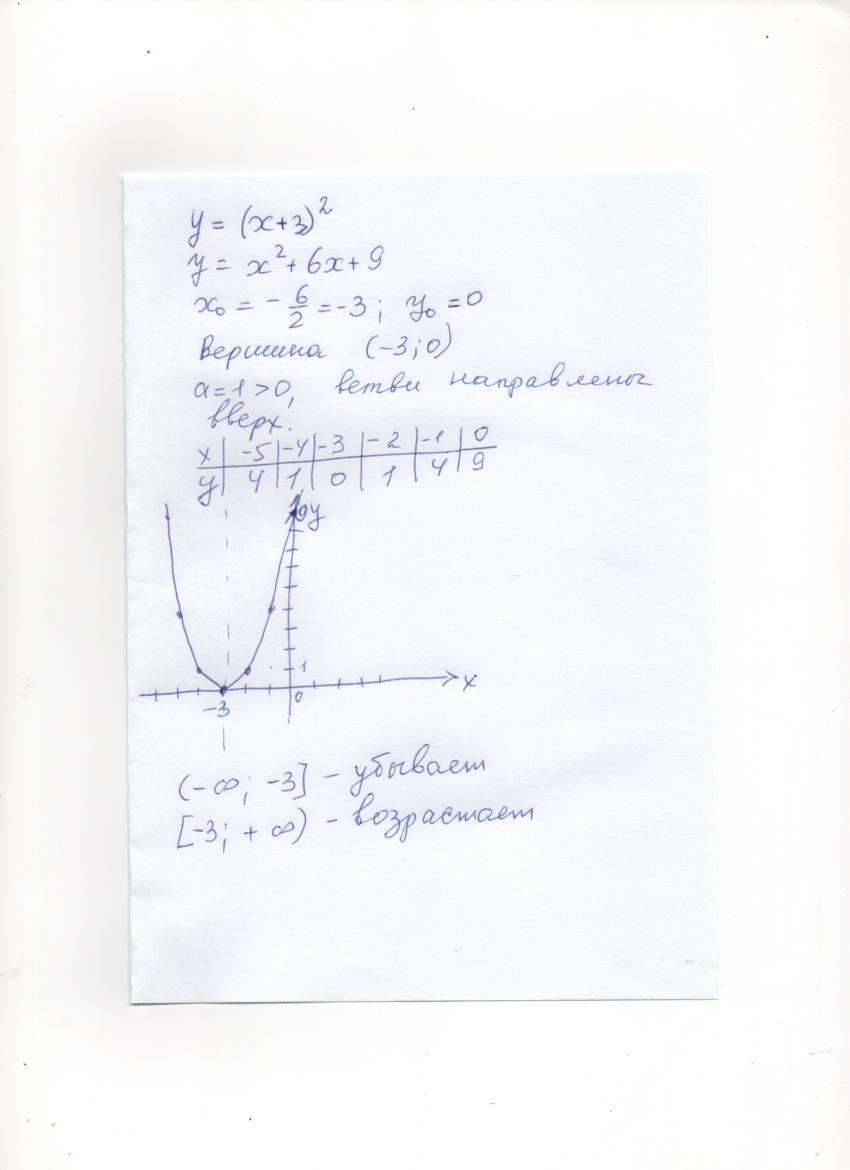 y = (x+3)²
y = x² + 6x + 9
x₀ = -6/2 = -3; y₀ = 0
Вершина (-3; 0)
a = 1 > 0, ветви направлены
вверх.
x | -5 | -4 | -3 | -2 | -1 | 0
y | 4 | 1 | 0 | 1 | 4 | 9
9 y
1
x
-3 0
(-∞; -3] - убывает
[-3; +∞) - возрастает